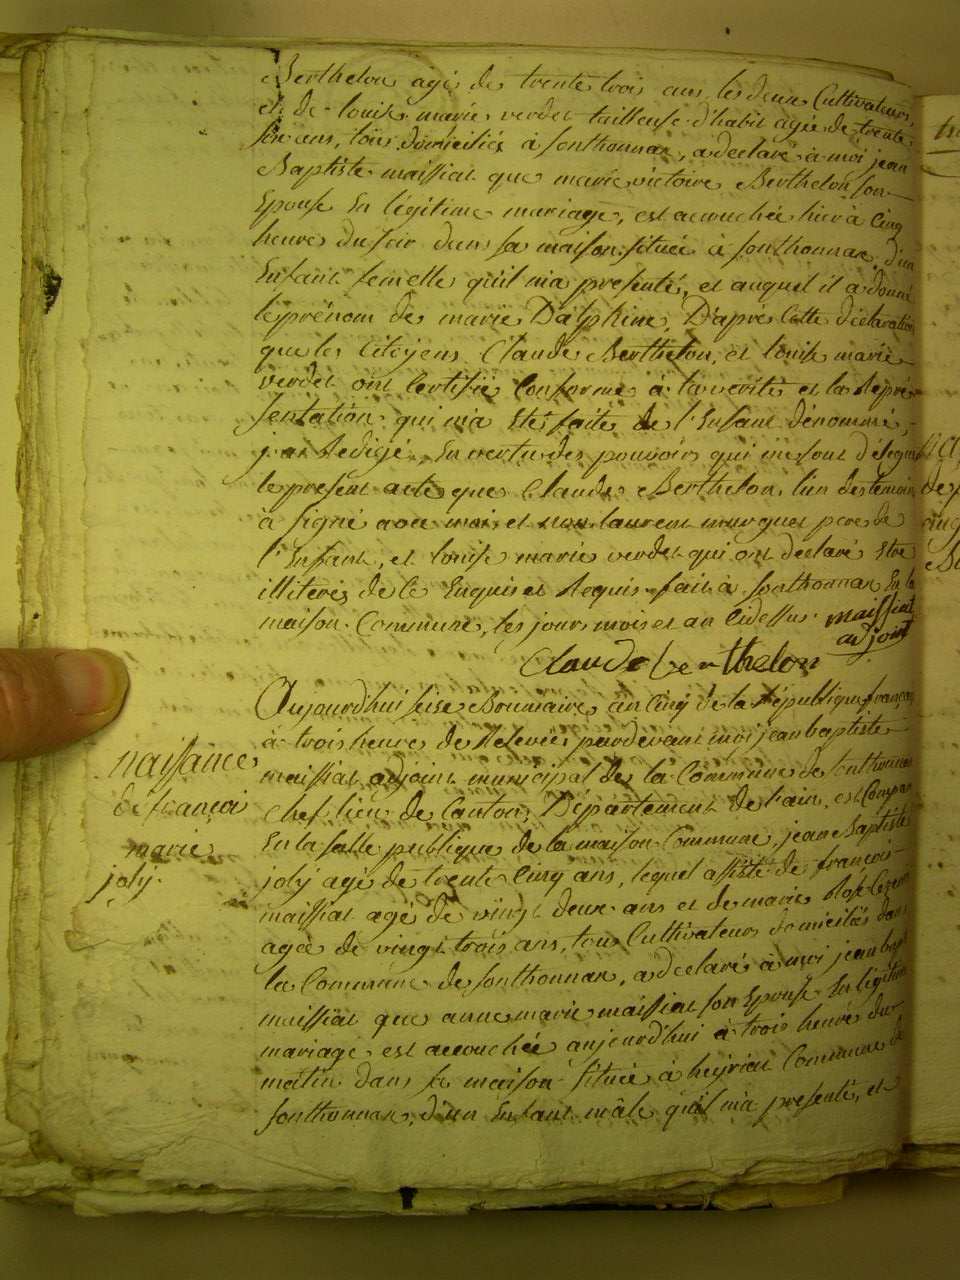 Berthelon agé de trente trois ans, les deux Cultivateurs,
et de louise marie verdet tailleuse d'habit agée de trente
six ans, tous domiciliés à sonthonnax, a déclaré à moi jean
Baptiste maissiat que marie victoire Berthelon son
Epouse En légitime mariage, est accouchée hier à Cinq
heure du soir dans sa maison située à sonthonnax, d'un
Enfant femelle qu'il m'a presenté, et auquel il a donné
le prénom de marie Dalphine, D'après Cette déclaration
que les Citoyens Claude Berthelon, et louise marie
verdet ont Certifié Conforme à la verité et la Repré
sentation qui m'a Eté faite de l'Enfant dénommé,
j'ai Redigé, En vertu des pouvoirs qui me sont délegués
le present acte que Claude Berthelon, l'un des temoins
à signé avec moi et non laurent mourguet pere de
l'Enfant, et louise marie verdet qui ont declaré Etre
illiterés de ce Enquis et Requis fait à sonthonnax En la
maison Commune, les jour mois et an Cidessus. maissiat
adjoint
Claude berthelon
Aujourd'hui seize Brumaire an Cinq de la République française
à trois heure de Relevée, pardevant moi jean baptiste
maissiat adjoint municipal de la Commune de sonthonnax
naissance
Chef lieu de Canton, Département de l'ain, est Comparu
de françoi
En la salle publique de la maison Commune, jean Baptiste
marie
joly agé de trente Cinq ans, lequel assisté de françois
joly.
maissiat agé de vingt deux ans et de marie Rose
agée de vingt trois ans, tous Cultivateurs domiciliés dans
la Commune de sonthonnax, a declaré à moi jean bapt
maissiat que anne marie maissiat son Epouse En légitime
mariage est accouchée aujourd'hui à trois heure du
matin dans sa maison située à heyriat Commune de
sonthonnax, d'un Enfant mâle qu'il m'a presenté, et